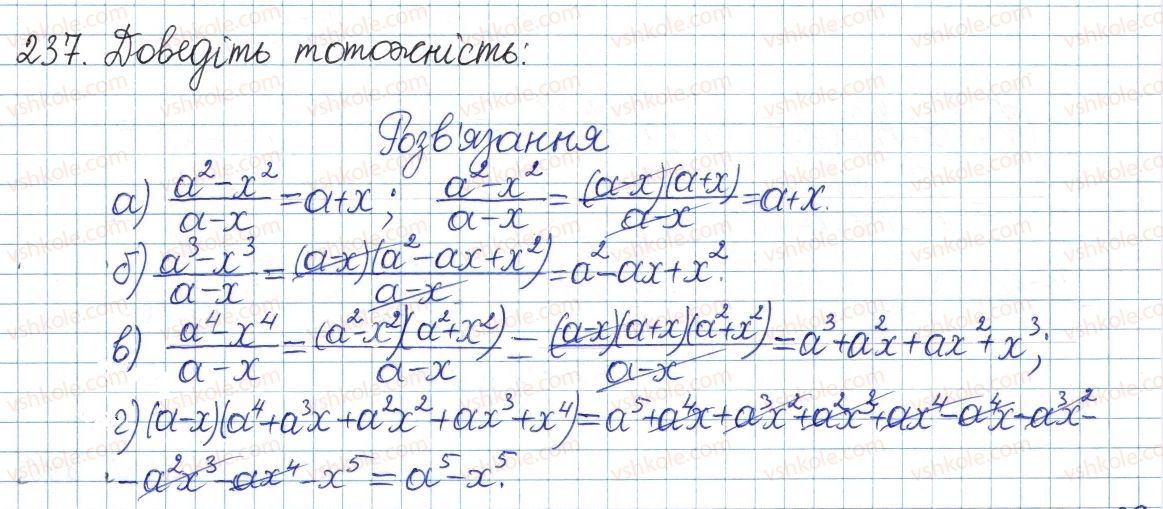 237. Доведіть тотожність:
Розв'язання
а) (a² - x²)/(a - x) = a + x; (a² - x²)/(a - x) = ((a - x)(a + x))/(a - x) = a + x.
б) (a³ - x³)/(a - x) = ((a - x)(a² - ax + x²))/(a - x) = a² - ax + x².
в) (a⁴ - x⁴)/(a - x) = ((a² - x²)(a² + x²))/(a - x) = ((a - x)(a + x)(a² + x²))/(a - x) = a³ + a²x + ax² + x³;
г) (a - x)(a⁴ + a³x + a²x² + ax³ + x⁴) = a⁵ + a⁴x + a³x² + a²x³ + ax⁴ - a⁴x - a³x² -
- a²x³ - ax⁴ - x⁵ = a⁵ - x⁵.